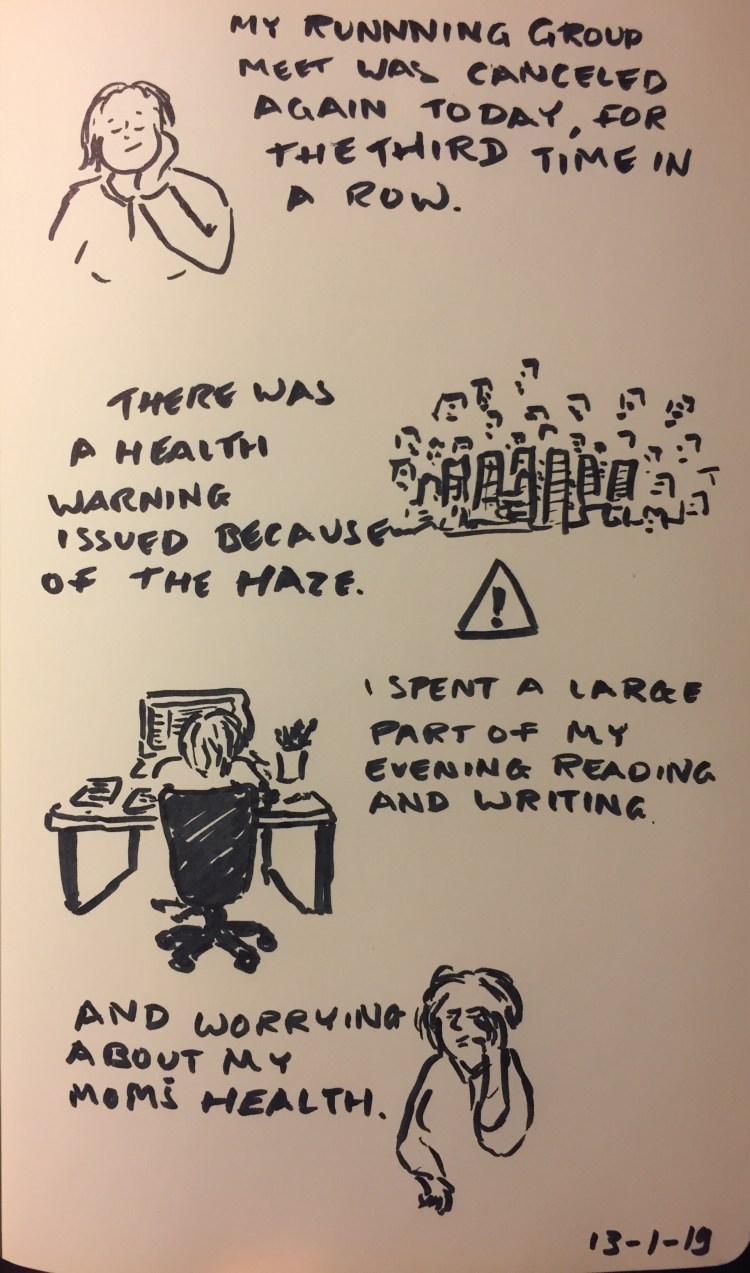 MY RUNNNING GROUP
MEET WAS CANCELED
AGAIN TODAY, FOR
THE THIRD TIME IN
A ROW.
THERE WAS
A HEALTH
WARNING
ISSUED BECAUSE
OF THE HAZE.
!
I SPENT A LARGE
PART OF MY
EVENING READING
AND WRITING.
AND WORRYING
ABOUT MY
MOM'S HEALTH.
13-1-19